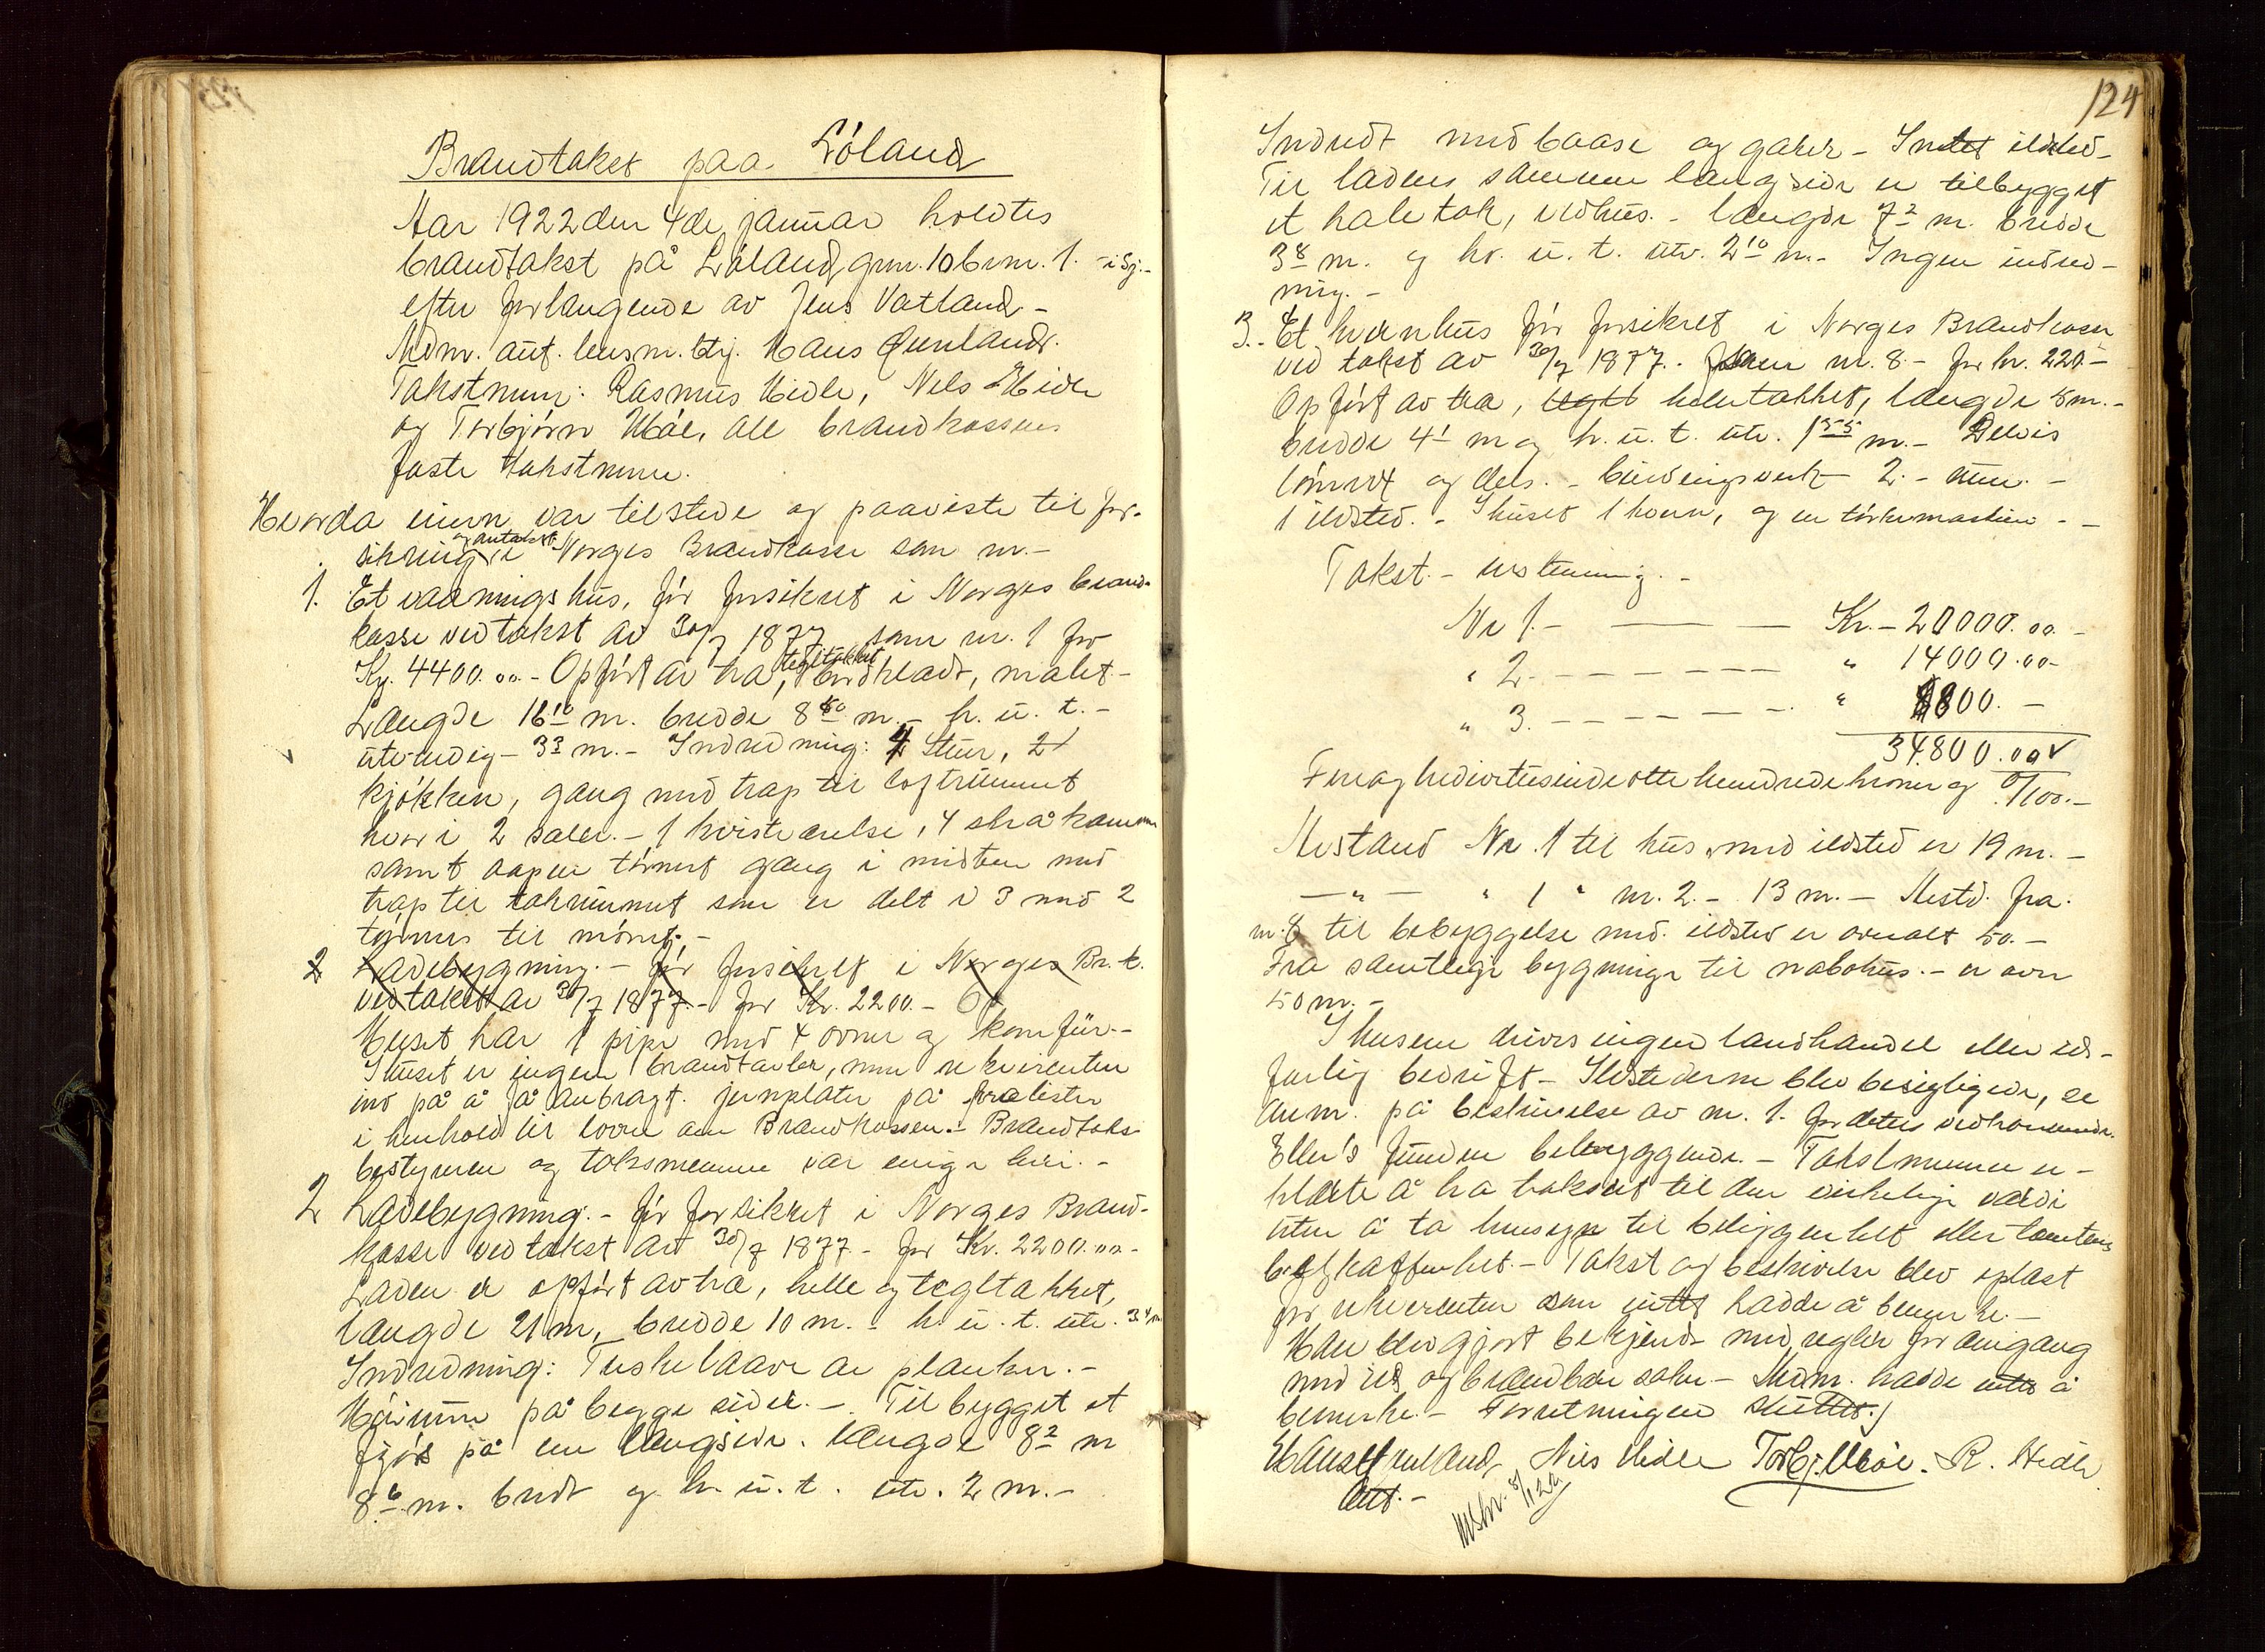 Brandtakst paa Lóland
Aar 1922 den 4de januar holdtes
brandtakst på Lóland, gnr. 10 brnr. 1. - i Sj.-
efter forlangende av Jens Vatland -
Adm. aut. lensm. btj. Hans
Takstmenn: Rasmus Hidle, Nils Hidle
og Torbjörn Móe, alle brandkassens
faste takstmenn.
var tilstede og paaviste til for-
og antakst
sikring i Norges Brandkasse som nr.-
1. Et vaaningshus, fór forsikret i Norges brand-
kasse ved takst av 30/7 1877 som nr. 1 for
tegltakket
Kr. 4400.00 - Opfórt av træ, bordklædt, malet -
Længde 16 10 m. bredde 8 60 m. - h. u. t. -
utvendig - 3 3 m. - Indredning: 4 stuer, 2
kjókken, gang med trap til loftrummet
hvori 2 saler. - 1 kvistværelse, 4 skråkammer
samt aapen tórnet gang i midten med
trap til takrummet som er delt i 3 med 2
tórner til mónet. -
2 Ladebygning. - fór forsikret i Norges Br. k.
ved takst av 30/7 1877. - for Kr. 2200. - Op
Huset har 1 pipe med 4 ovner og komfür. -
I huset er ingen brandtavler, men rekvirenten
ind på å få anbragt jernplater på
i henhold til loven om Brandkassen. - Brandtaks-
bestyreren og taksmennene var enige heri. -
2 Ladebygning. - fór forsikret i Norges Brand-
kasse ved takst av 30/7 1877 - for Kr. 2200.00 -
Laden er opfórt av træ, helle og tegltakket,
længde 21 m, bredde 10 m. - h. u. t. utv. 3 4 m
Indredning: Tæskelaave av planker. -
Hóirum på begge sider. - Tilbygget et
fjós på en langside. Længde 8 2 m
8 6 m. bredt og h. u. t. utv. 2 m. -
124
Indredt med baase og gater - Intet ildsted -
Til ladens samme langside er tilbygget
et haletak, vedhus. - længde 7 2 m. bredde
3 8 m. og h. u. t. utv. 2 10 m. - Ingen indred-
ning. -
3. - Et kvernhus fór forsikret i Norges Brandkasse
ved takst av 30/7 1877. - som nr. 8. - for kr. 220. -
Opfórt av træ, teglt helletakket, længde 5 m. -
bredde 4 1 m og h. u. t. utv. 1 55 m. - Delvis
tómret og dels. - bindingsverk 2. - rum. -
1 ildsted. - I huset 1 kvern, og en tórkemaskine - -
Takst. - ansettning. -
Nr 1. - Kr. - 20000.00 -
" 2. - " 14000.00 -
" 3. - " 800. -
34.800.00
Fireogtredivetusindeottehundredekroner og 0/100. -
Avstand Nr. 1 til hus med ildsted er 19 m. -
- " - " 1 " nr. 2. - 13 m. - Avstd. fra
nr. 8 til bebyggelse med ildsted er overalt 50. -
Fra samtlige bygninger til nabohus. - er over
50 m. -
I husene drives ingen landhandel eller ild-
farlig bedrift - Ildstederne blev besigtigede, se
anm. på beskrivelse av nr. 1. for dettes vedkommende.
Ellers funden betryggende. - Takstmennene er-
klærte å ha taksert til den virkelige værdi
uten å ta hensyn til beliggenhet eller tomtens
beskaffenhet. - Takst og beskrivelse blev oplæst
for rekvirenten som intet hadde å bemerke. -
Han blev gjort bekjendt med regler for omgang
med ild og brandbare saker - Adm. hadde intet å
bemerke. - Forretningen sluttet.
Nils Hidle Torbj. Móe. R. Hidle
Aut. -